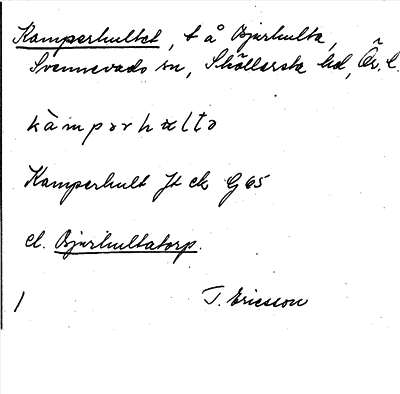 Kamperhultet, t å Bjurhulta,
Svennevads sn, Sköllersta hd, Ör. l.
kàmpərhæltə
Kamperhult Jt ck G 65
el. Bjurhultatorp.
T. Ericsson